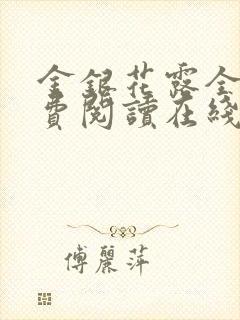 金銀花露全
費閱讀在綫
傅麗萍